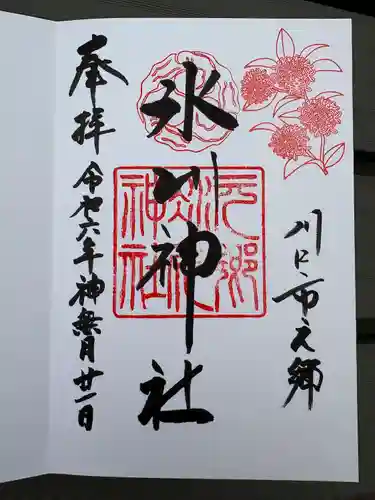 川口市元郷
氷川神社
奉拝
令和六年神無月廿一日
元郷
氷川
神社